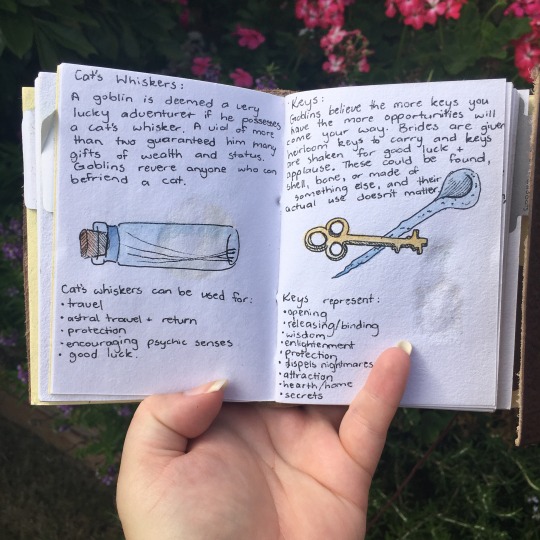 Cat's Whiskers:
A goblin is deemed a very
lucky adventurer if he possesses
a cat's whisker. A vial of more
than two guaranteed him many
gifts of wealth and status.
Goblins revere anyone who can
befriend a cat.
Cat's whiskers can be used for:
• travel
• astral travel + return
• protection
• encouraging psychic senses
• good luck.
Keys:
Goblins believe the more keys you
have the more opportunities will
come your way. Brides are given
heirloom keys to carry and keys
are shaken for good luck +
applause. These could be found,
shell, bone, or made of
something else, and their
actual use doesn't matter.
Keys represent:
• opening
• releasing/binding
• wisdom
• enlightenment
• protection
• dispels nightmares
• attraction
• hearth/home
• secrets